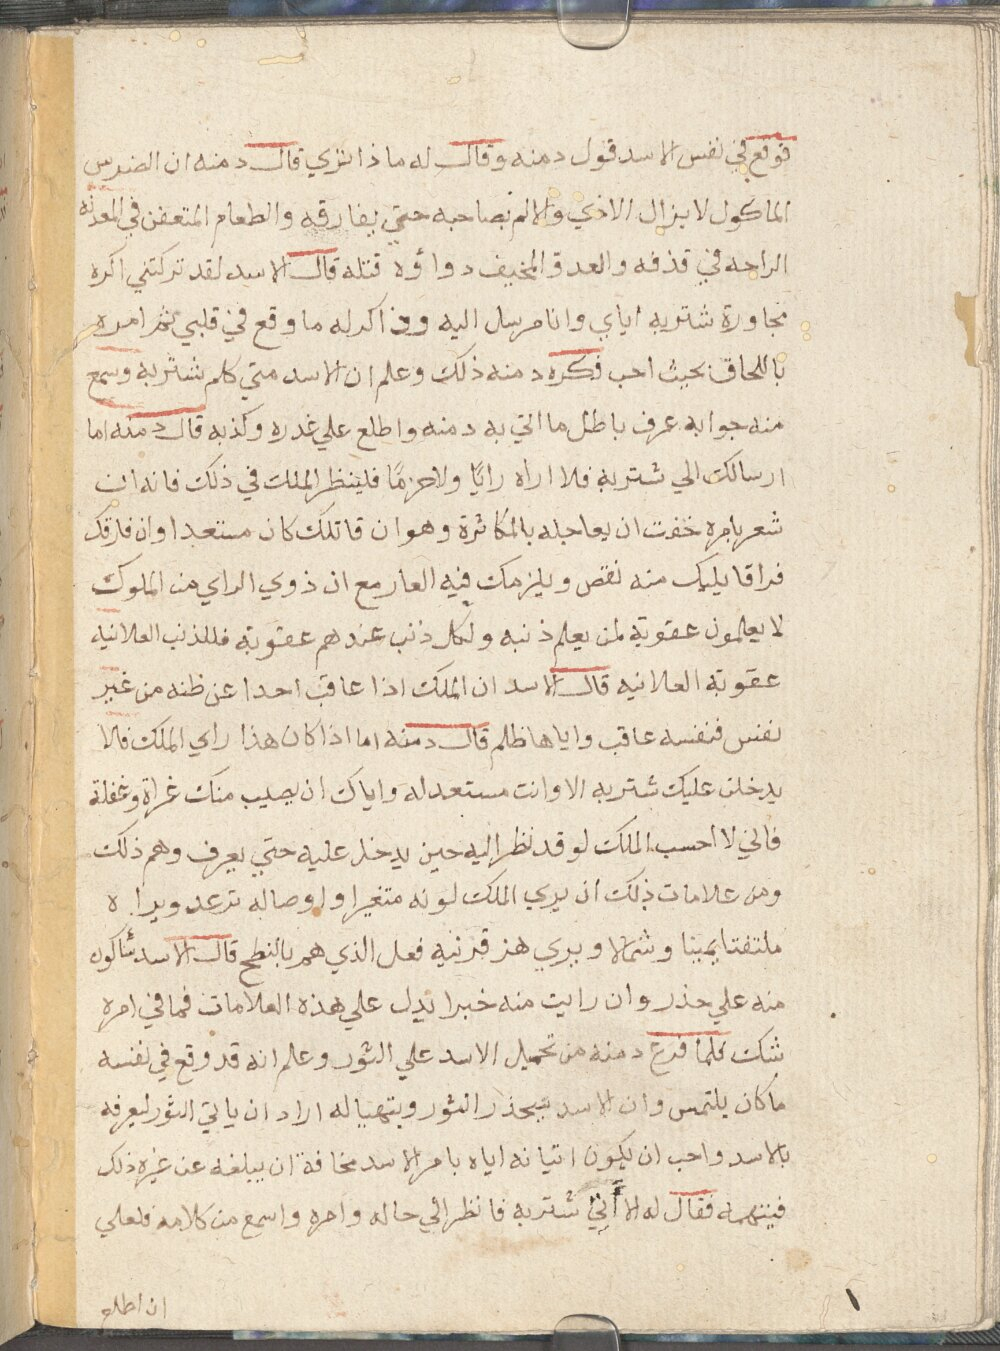 فوقع في نفس الاسد قول دمنه وقال له ماذا تري قال دمنه ان الضرس
الماكول لا يزال الاذي والالم بصاحبه حتي يفارقه والطعام المتعفن في المعدة
الراحه في قذفه والعدو المخيف دواؤه قتله قال الاسد لقد تركتني اكره
مجاورة شتربه اياي وانا مرسل اليه وذاكر له ما وقع في قلبي ثم امره
باللحاق بحيث احب فكره دمنه ذلك وعلم ان الاسد متي كلم شتربه وسمع
منه جوابه عرف باطل ما اتي به دمنه واطلع علي غدره وكذبه قال دمنه اما
ارسالك الي شتربه فلا اراه رايًا ولا حزمًا فلينظر الملك في ذلك فانه ان
شعر بامره خفت ان يعاجله بالمكاثرة وهو ان قاتلك كان مستعدا وان فارقك
فراقا يليك منه نقص ويلزمك فيه العار مع ان ذوي الراي من الملوك
لا يعلمون عقوبة لمن يعلم ذنبه ولكل ذنب عندهم عقوبة فللذنب العلانيه
عقوبة العلانيه قال الاسد ان الملك اذا عاقب احدا عن ظنه من غير
نفس فنفسه عاقب واياها ظلم قال دمنه اما اذا كان هذا راي الملك فلا
يدخلن عليك شتربه الا وانت مستعد له واياك ان يصيب منك غراة وغفلة
فاني لا احسب الملك لو قد نظر اليه حين يدخل عليه حتي يعرف وهم ذلك
ومن علامات ذلك ان يري الملك لونه متغيرا واوصاله ترعد ويراه
ملتفتا يمينا وشمالا ويري هز قرنيه فعل الذي هم بالنطح قال الاسد ساكون
منه علي حذر وان رايت منه خبرا يدل علي هذه العلامات فما في امره
شك فلما فرغ دمنه من تحميل الاسد علي الثور وعلم انه قد وقع في نفسه
ما كان يلتمس وان الاسد سيحذر الثور ويتهيا له اراد ان ياتي الثور ليعرفه
بالاسد واحب ان يكون اتيانه اياه بامر الاسد مخافة ان يبلغه عن غيره ذلك
فيتهمه فقال له الا آتي شتربه فانظر الي حاله وامره واسمع من كلامه فلعلي
ان اطلع